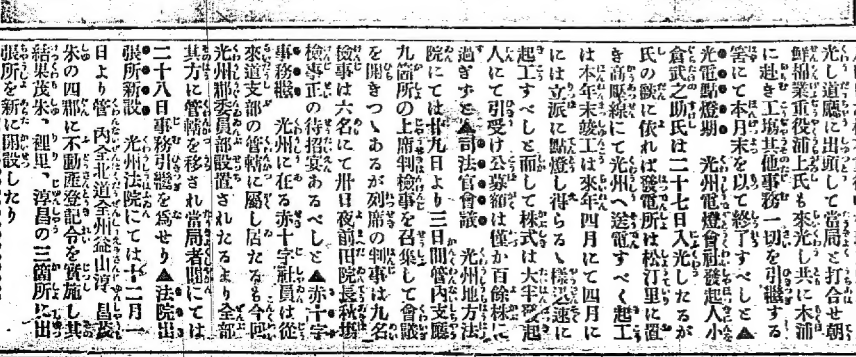 光し道廳に出頭して當局と打合せ朝
鮮棉業重役浦上氏も來光し共に木浦
に赴き工場其他事務一切を引繼する
筈にて本月末を以て終了すべしと▲
光電點燈期　光州電燈會社發起人小
倉武之助氏は二十七日入光したるが
氏の談に依れば發電所は松汀里に置
き高壓線にて光州へ送電すべく起工
は本年末竣工は來年四月にて四月に
には立派に點燈し得らるゝ樣急速に
起工すべしと而して株式は大半發起
人にて引受け公募額は僅か百餘株に
過ぎずと▲司法官會議　光州地方法
院にては廿九日より三日間管內支廳
九箇所の上席判檢事を召集して會議
を開きつゝあるが列席の判事は九名
檢事は六名にて卅日夜前田院長秋場
檢事正の待招宴あるべしと▲赤十字
事務繼　光州に在る赤十字社員は從
來道支部の管轄に屬し居たるも今回
光州郡委員部設置されたるより全部
其方に管轄を移され當局者間にては
二十八日事務引繼を爲せり▲法院出
張所新設　光州法院にては十二月一
日より管內全北道全州益山淳昌茂
朱の四郡に不動產登記令を實施し其
結果茂朱、裡里、淳昌の三箇所に出
張所を新に開設したり